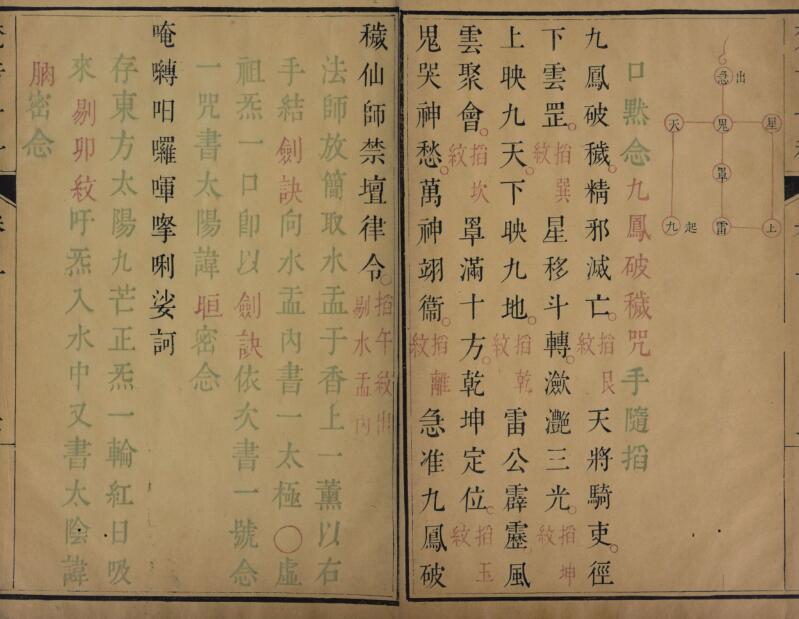 急出
天 鬼 星
罩
九起 雷 上
口默念九鳳破穢咒手隨掐
九鳳破穢。精邪滅亡。掐艮紋天將騎吏。徑
下雲罡。掐巽紋星移斗轉。瀲灔三光。掐坤紋
上映九天。下映九地。掐乾紋雷公霹靂風
雲聚會。掐坎紋罩滿十方。乾坤定位。掐玉紋
鬼哭神愁。萬神翊衞。掐離紋急准九鳳破
穢仙師禁壇律令。掐午紋出剔水盂內
法師放簡取水盂于香上一薰以右
手結劍訣向水盂內書一太極〇虛
祖炁一口卽以劍訣依次書一號念
一咒書太陽諱𣆯密念
唵囀呬囉㖵㨗唎娑訶
存東方太陽九芒正炁一輪紅日吸
來剔卯紋吁炁入水中又書太陰諱
䏎密念